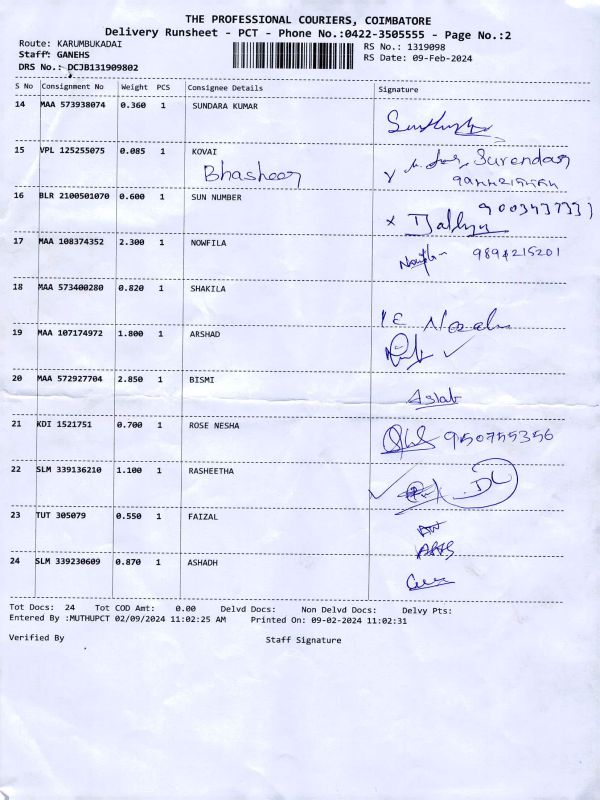 THE PROFESSIONAL COURIERS, COIMBATORE
Delivery Runsheet - PCT - Phone No.:0422-3505555 - Page No.:2
Route: KARUMBUKADAI RS No.: 1319098
Staff: GANEHS RS Date: 09-Feb-2024
DRS No.: DCJB131909802
S No Consignment No Weight PCS Consignee Details Signature
14 MAA 573938074 0.360 1 SUNDARA KUMAR
15 VPL 125255075 0.085 1 KOVAI
Bhasheer Surendar
16 BLR 2100501070 0.600 1 SUN NUMBER
17 MAA 108374352 2.300 1 NOWFILA
9894215201
18 MAA 573400280 0.820 1 SHAKILA
19 MAA 107174972 1.800 1 ARSHAD
20 MAA 572927704 2.850 1 BISMI
Aslab
21 KDI 1521751 0.700 1 ROSE NESHA
22 SLM 339136210 1.100 1 RASHEETHA
23 TUT 305079 0.550 1 FAIZAL
24 SLM 339230609 0.870 1 ASHADH
Tot Docs: 24 Tot COD Amt: 0.00 Delvd Docs: Non Delvd Docs: Delvy Pts:
Entered By :MUTHUPCT 02/09/2024 11:02:25 AM Printed On: 09-02-2024 11:02:31
Verified By Staff Signature